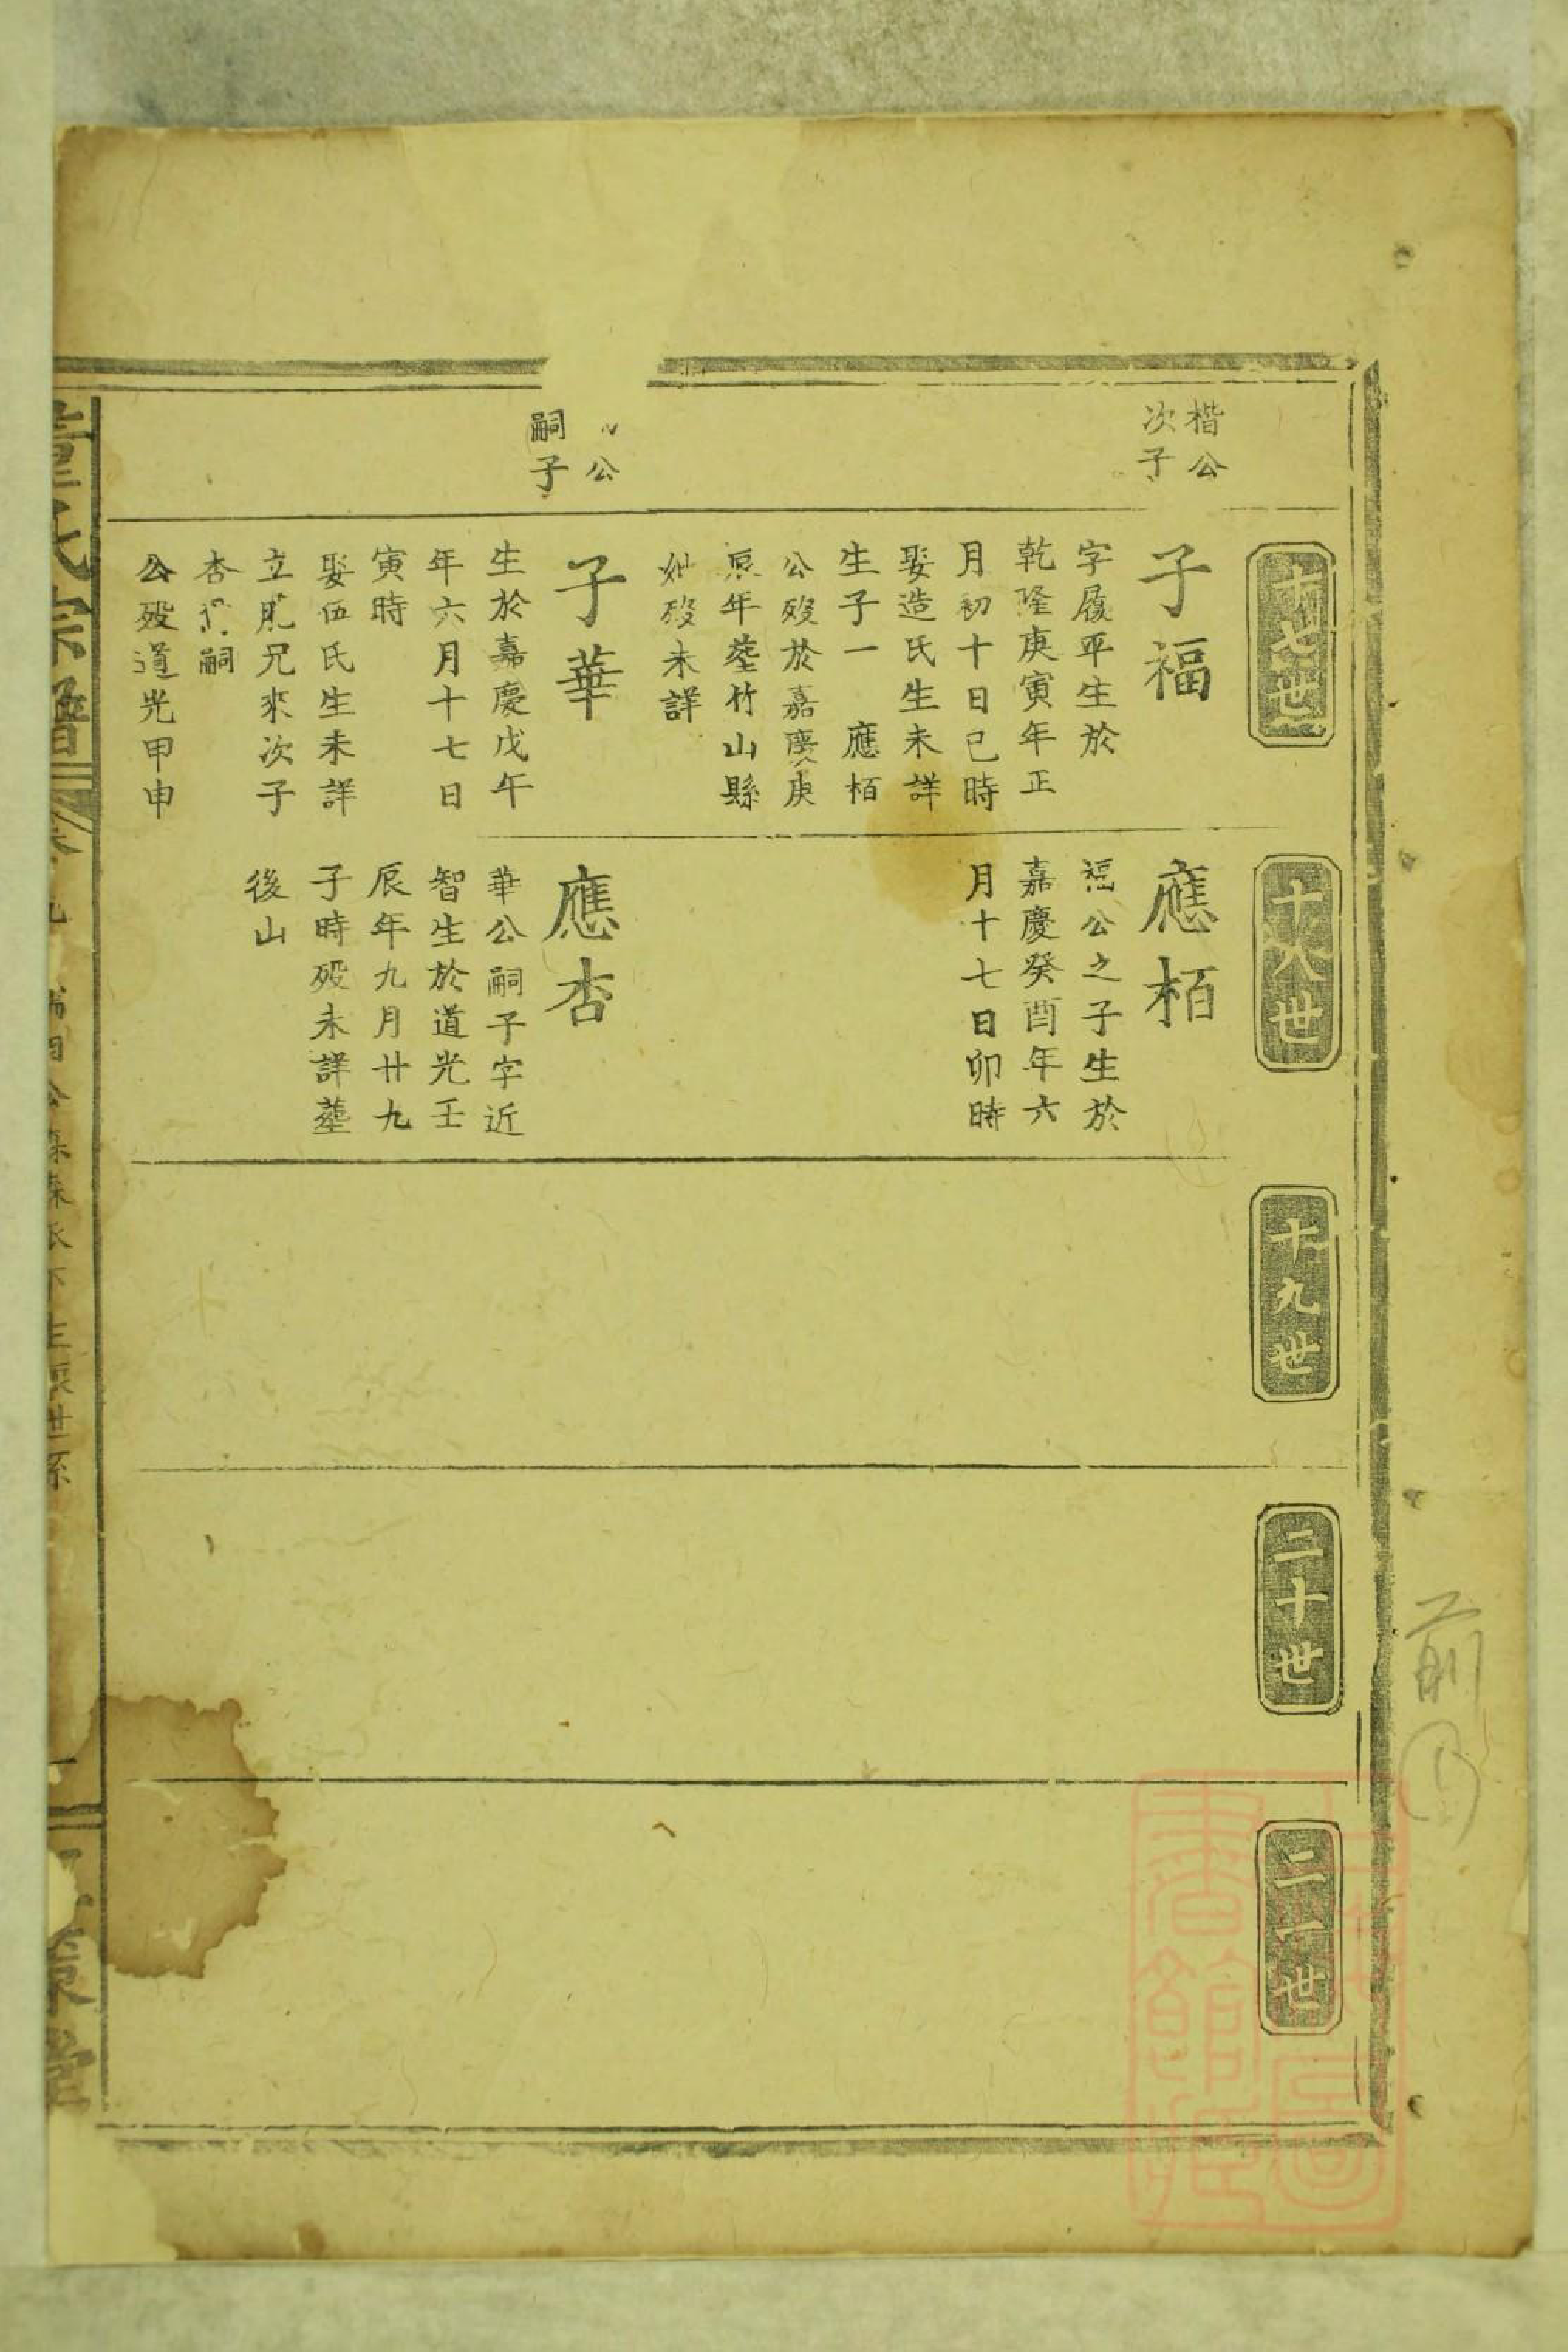 楷公
次子
十七世
子福
字履平生於
乾隆庚寅年正
月初十日巳時
娶造氏生未詳
生子一 應栢
公歿於嘉慶庚
辰年塟竹山縣
妣歿未詳
公
嗣子
子華
生於嘉慶戊午
年六月十七日
寅時
娶伍氏生未詳
立胞兄來次子
杏嗣
公歿道光甲申
十八世
應栢
福公之子生於
嘉慶癸酉年六
月十七日卯時
應杏
華公嗣子字近
智生於道光壬
辰年九月廿九
子時歿未詳塟
後山
十九世
二十世
二一世
氏宗譜
堂
前